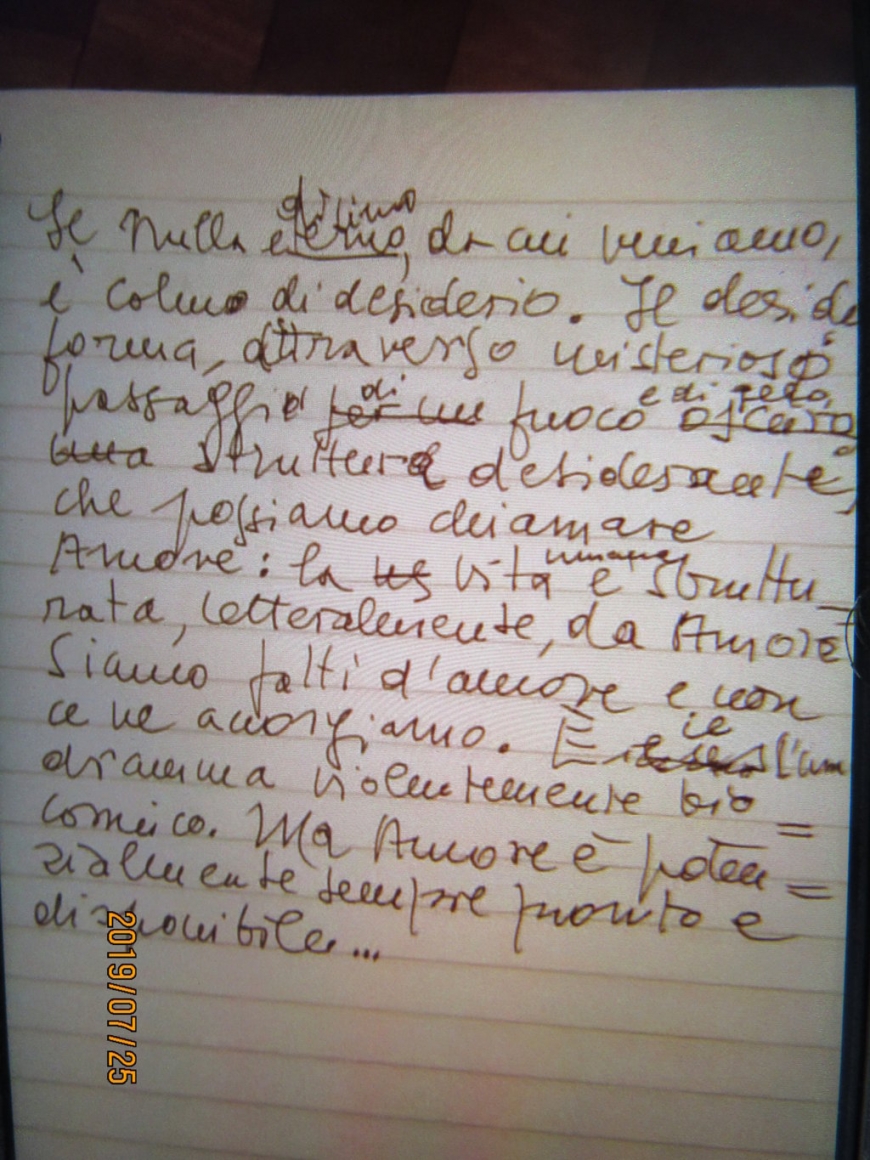 Il Nulla eterno, da cui veniamo,
è colmo di desiderio. Il deside
forma, attraverso misterioso
passaggio per un di fuoco e di gelo, oscuro
una struttura desiderante,
che possiamo chiamare
Amore: la vita umana è struttu_
rata, letteralmente, da Amore
Siamo fatti d'amore e non
ce ne accorgiamo. È il
dramma violentemente bio=
cosmico. Ma Amore è poten=
zialmente sempre pronto e
disponibile...
2019/07/25